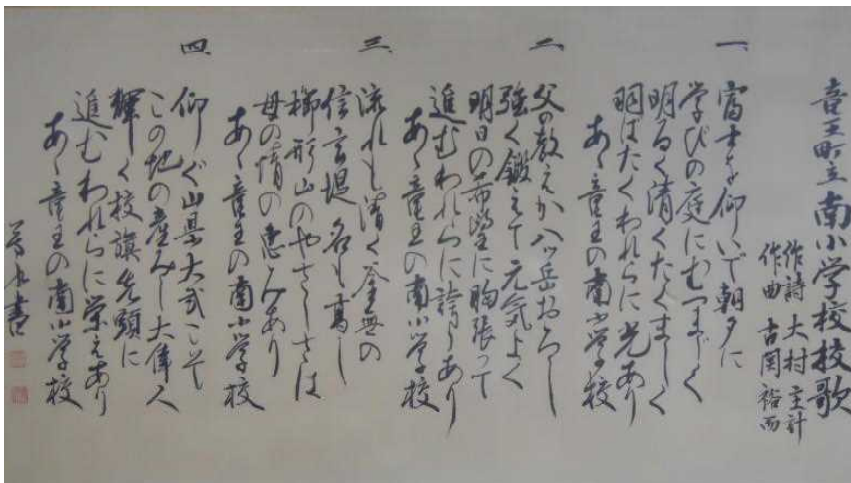 竜王町立南小学校校歌
作詩 大村主計
作曲 古関裕而
一、
富士を仰いで朝夕に
学びの庭にむつまじく
明るく清くたくましく
羽ばたくわれらに光あり
あゝ竜王の南小学校
二、
父の教えか八ヶ岳おろし
強く鍛えて元気よく
明日の希望に胸張って
進むわれらに誇りあり
あゝ竜王の南小学校
三、
流れも清く釜無の
信玄堤 名も高し
櫛形山のやさしさは
母の情の恵みあり
あゝ竜王の南小学校
四、
仰ぐ山県大弐こそ
この地の産みし大偉人
輝く校旗先頭に
進むわれらに栄えあり
あゝ竜王の南小学校
書